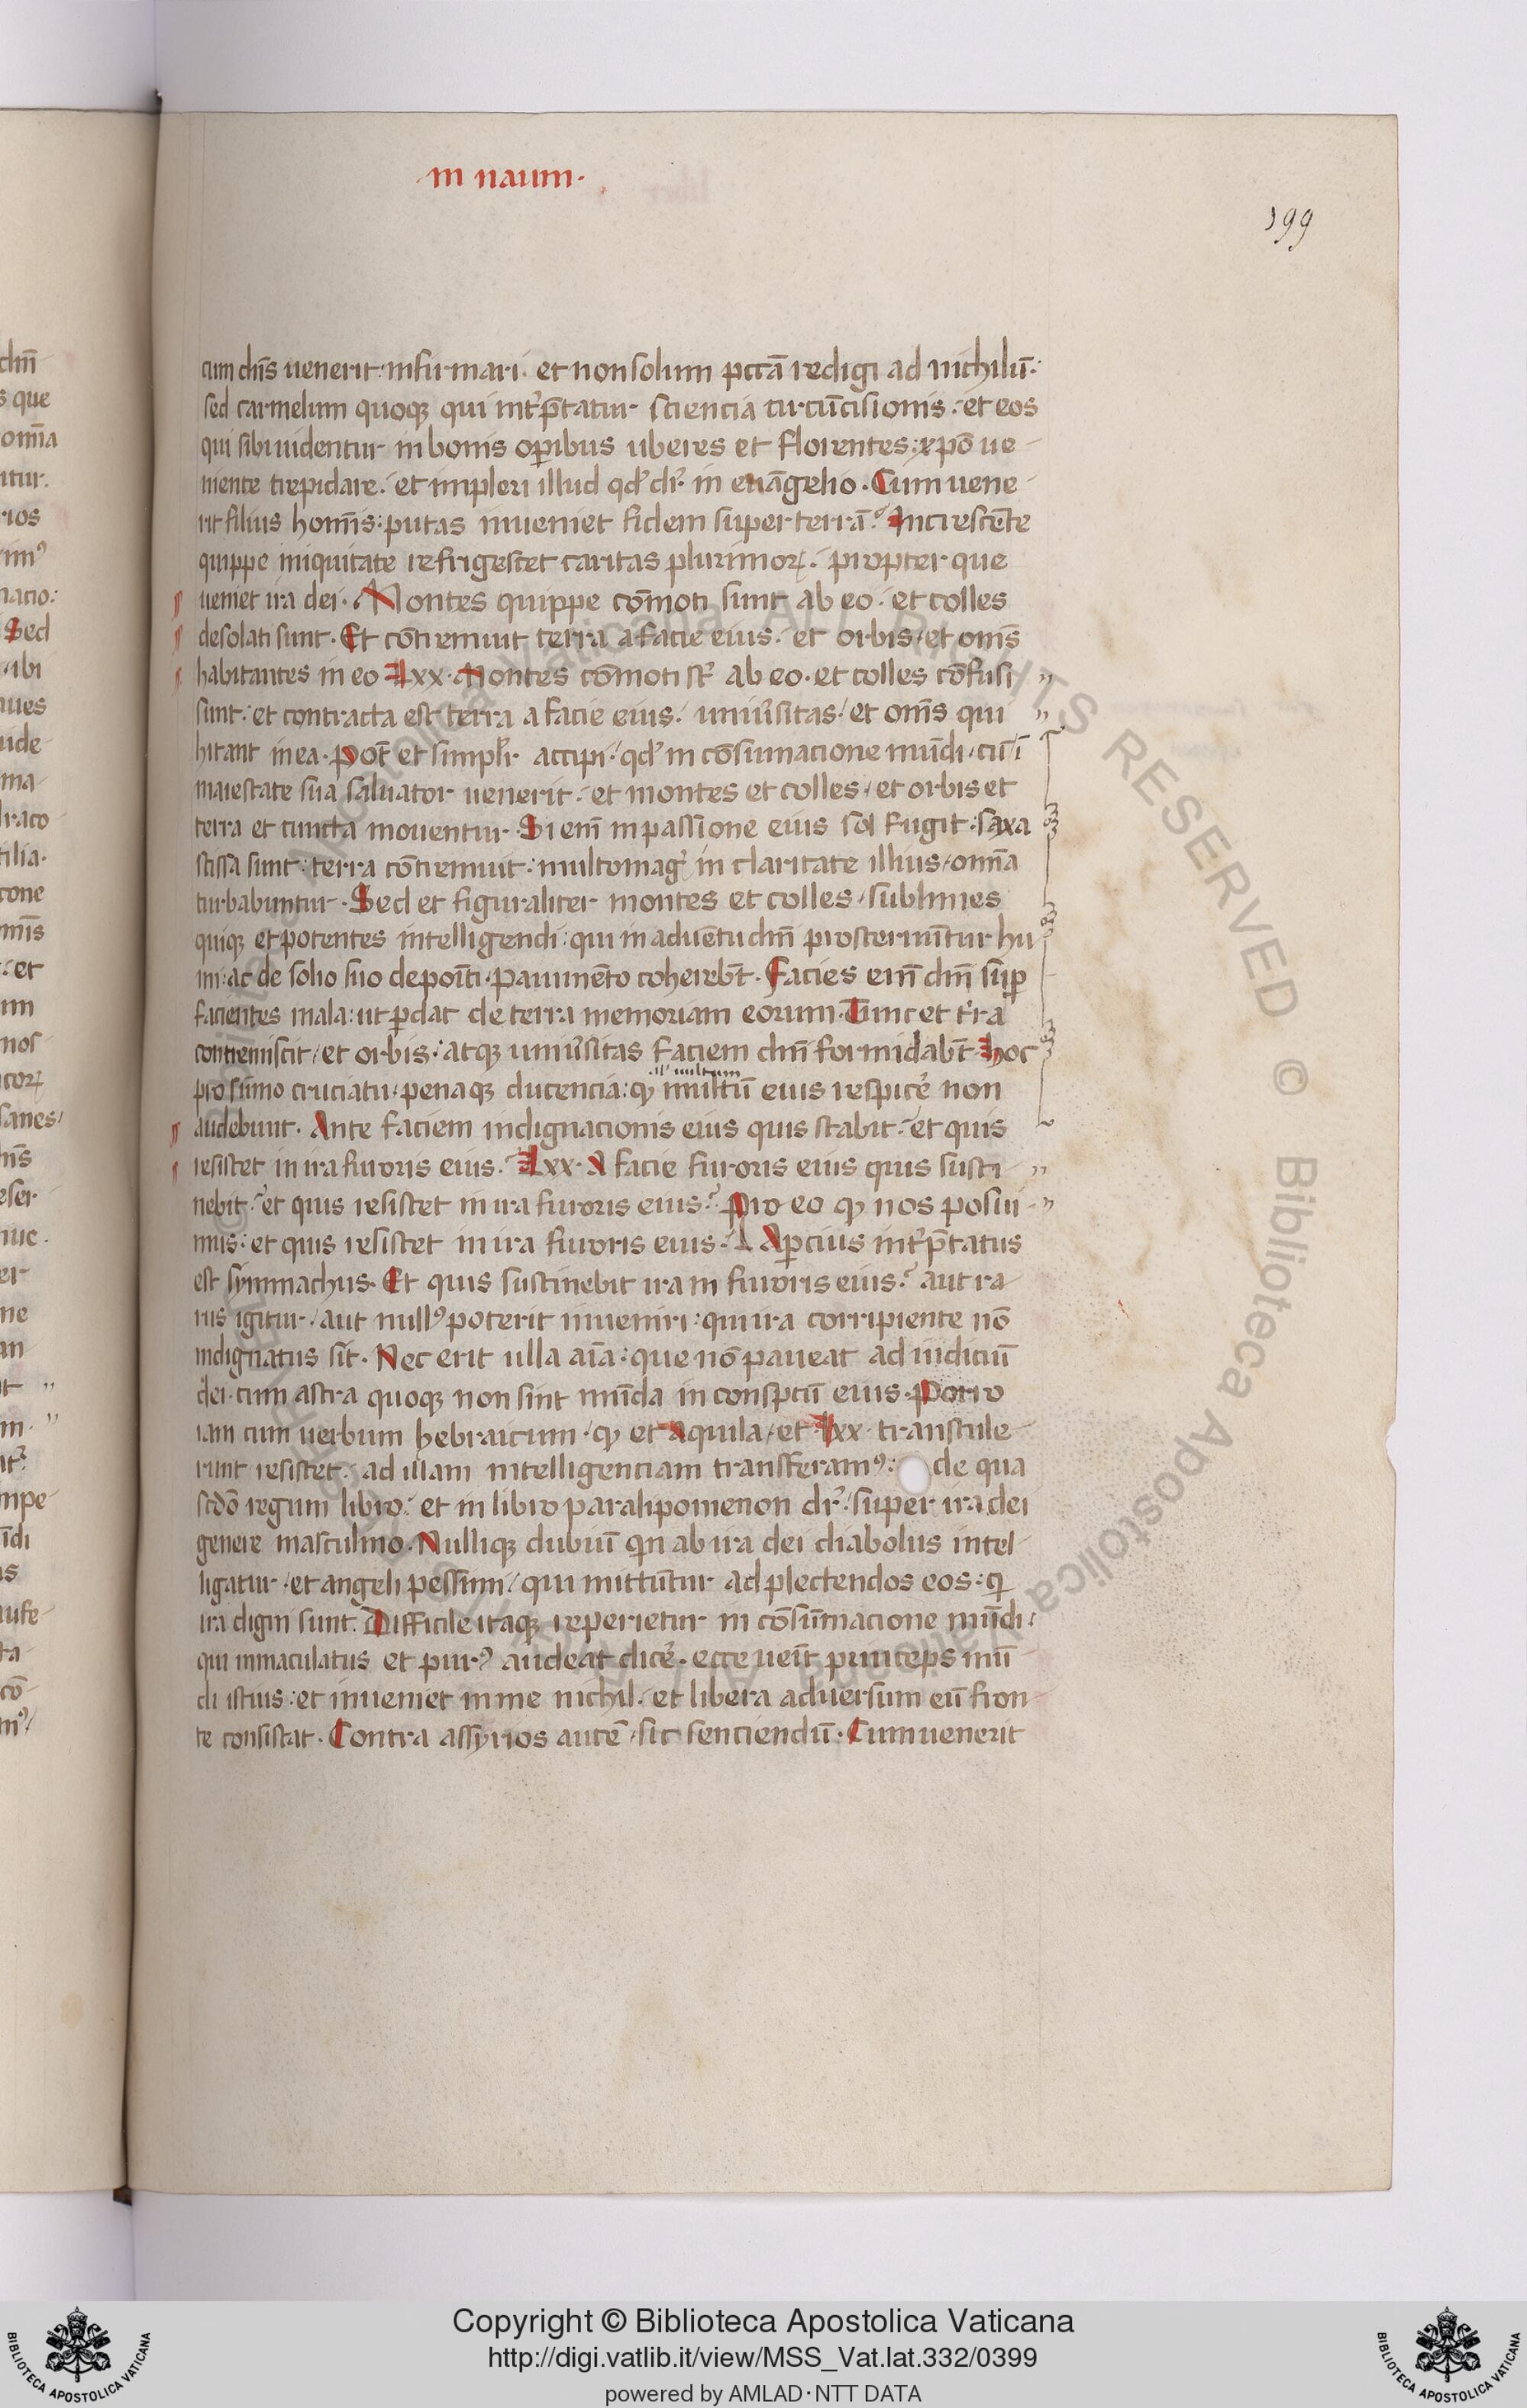 ·in naum·
199
cum dn̄s uenerit: infirmari· et non solum pccā redigi ad nichilū:
sed carmelum quoqꝫ qui int̓p̄tatur sciencia circūcisionis: et eos
qui sibi uidentur in bonis oꝑibus uberes et florentes: xpō ue-
niente trepidare: et impleri illud qd̓ dr̓ in euāgelio· Cum uene-
rit filius homīs: putas inueniet fidem super terrā? Increscēte
quippe iniquitate refrigescet caritas plurimoꝝ: propter que
ueniet ira dei· Montes quippe cōmoti sunt ab eo: et colles
desolati sunt· Et cōtremuit terra a facie eius: et orbis/ et om̄s
habitantes in eo Lxx· Montes cōmoti st̓ ab eo· et colles cōfusi
sunt: et contracta est terra a facie eius: uniu̓sitas/ et om̄s qui
hitant in ea· Pot̄ et simplr̓ accipi: qd̓ in cōsumacione mūdi/ cū ī
maiestate sua saluator uenerit: et montes et colles/ et orbis et
terra et cuncta mouentur· Si em̄ in passione eius sol fugit: saxa
scissa sunt: terra cōtremuit: multomag̓ in claritate illius/ omīa
turbabuntur· Sed et figuraliter montes et colles/ sublimes
quiqꝫ et potentes intelligendi: qui in aduentu dn̄i prosternūtur hu
mi: ac de solio suo depoīti· pauimēto coherebt̄· Facies em̄ dn̄i suꝑ
facientes mala: ut ꝑdat de terra memoriam eorum· Tunc et t̓ra
contremiscit/ et orbis: atqꝫ uniu̓sitas faciem dn̄i formidabt̄· Hoc
pro sūmo cruciatu/ penaqꝫ ducencia: ꝙ multū eius respice̓ non
·il' multum
audebunt· Ante faciem indignacionis eius quis stabit: et quis
resistet in ira furoris eius· Lxx· A facie furoris eius quis susti-
nebit: et quis resistet in ira furoris eius? Pro eo ꝙ nos posui-
mus: et quis resistet in ira furoris eius: Aꝑcius int̓p̄tatus
est symmachus· Et quis sustinebit iram furoris eius? aut ra-
rus igitur/ aut nullꝰ poterit inueniri: qui ira corripiente nō
indignatus sit· Nec erit ulla aīa: que nō paueat ad iudiciū
dei· cum astra quoqꝫ non sint mūda in conspctū eius· Porro
iam cum uerbum hebraicum· ꝙ et Aquila/ et lxx transtule-
runt resistet: ad illam intelligenciam transferamꝰ: de qua
scdō regum libro: et in libro paralipomenon dr̓: super ira dei
genere masculino· Nulliqꝫ dubiū qn̄ ab ira dei diabolus intel-
ligatur· et angeli pessimi/ qui mittūtur ad plectendos eos: q̄
ira digni sunt· Difficile itaqꝫ reperietur in cōsūmacione mūdi/
qui immaculatus et purꝰ audeat dice̓· ecce ueīt princeps mū-
di istius: et inueniet in me nichil: et libera aduersum eū fron-
te consistat· Contra assyrios autē/ sic senciendū· Cum uenerit
Copyright © Biblioteca Apostolica Vaticana
http://digi.vatlib.it/view/MSS_Vat.lat.332/0399
powered by AMLAD·NTT DATA